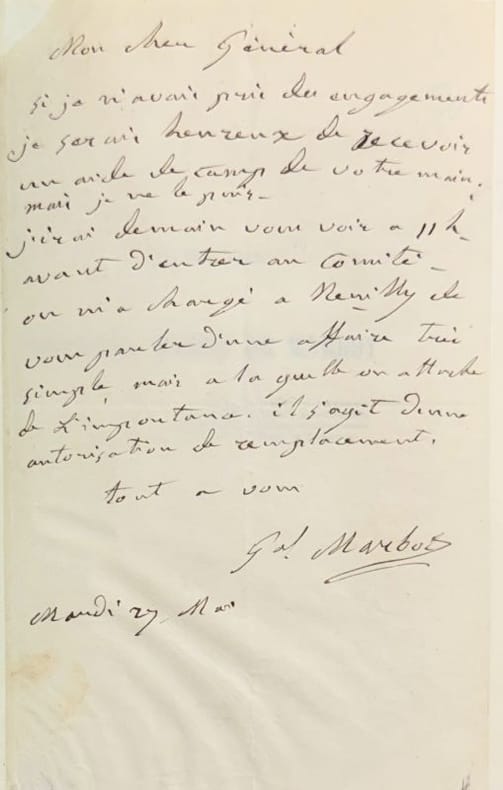 Mon cher Général
si je n'avais pris des engagements
je serais heureux de recevoir
un aide de camp de votre main.
mais je ne le puis_
j'irai demain vous voir a 11 h_
avant d'entrer au Comité_
on m'a chargé a Neuilly de
vous parler d'une affaire très
simple, mais a la quelle on attache
de L'importance. il s'agit d'une
autorisation de remplacement.
tout a vous
Gal. Marbot
Mardi 27 Mai